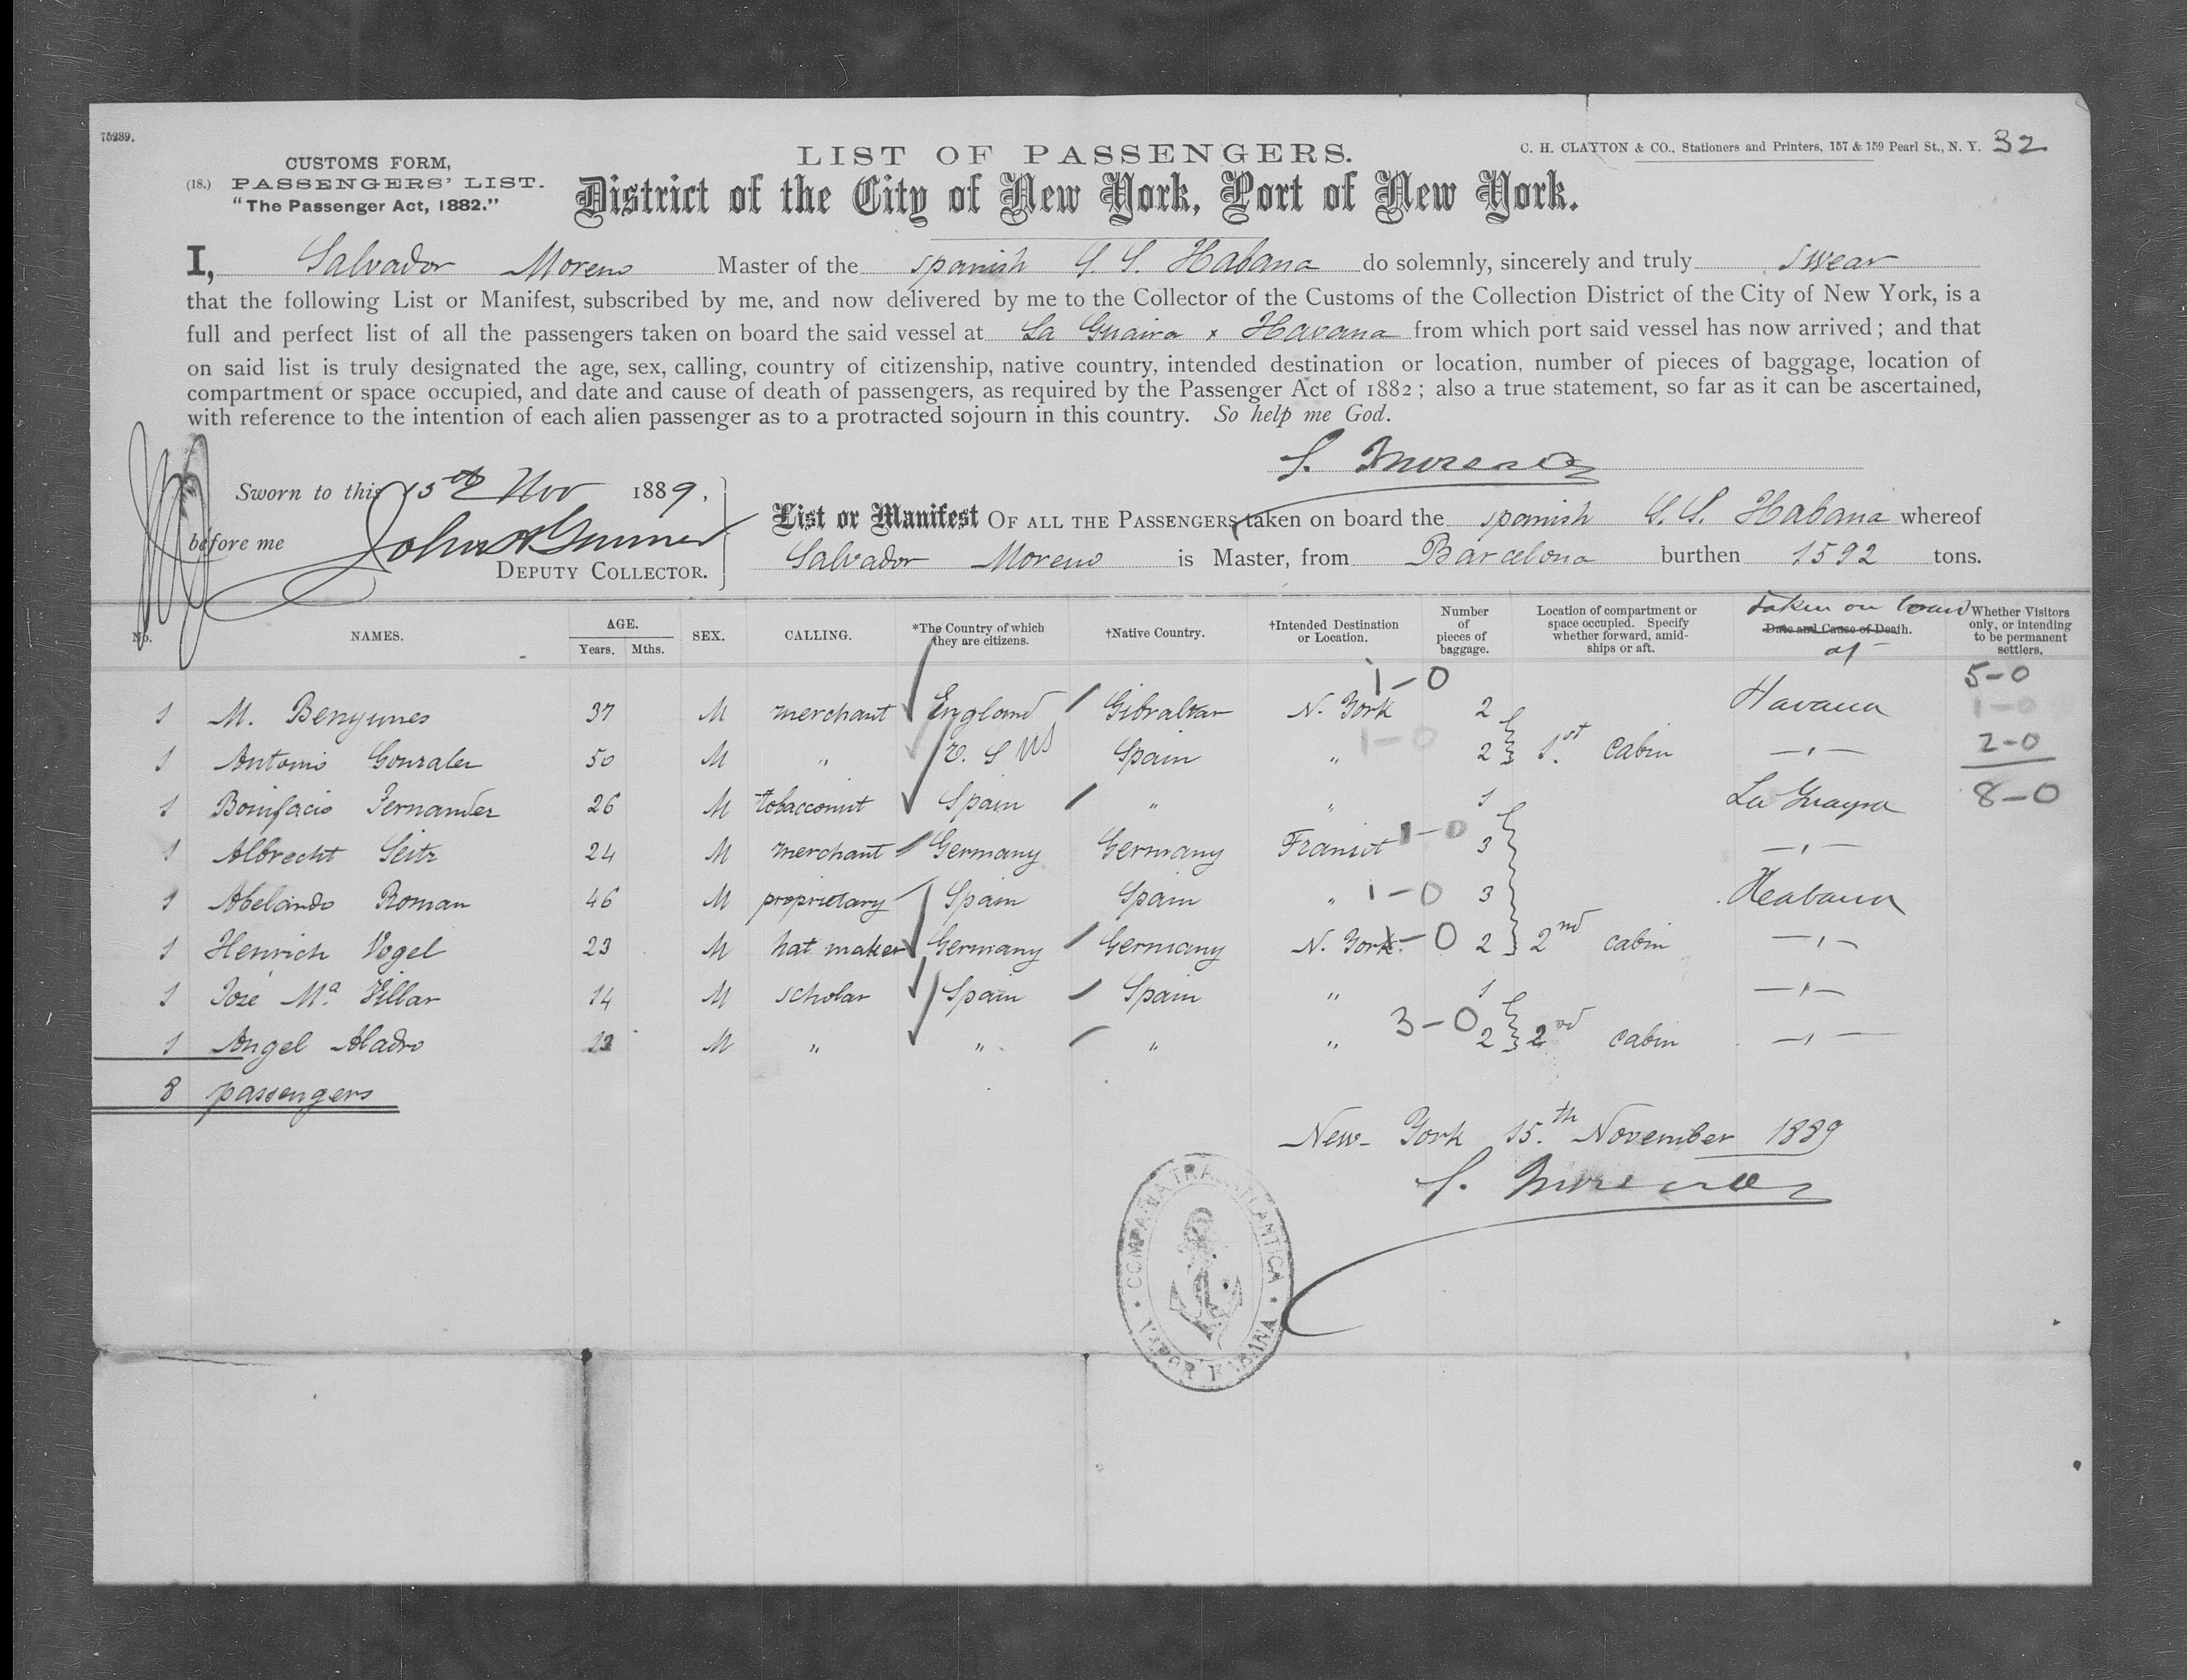 75239.
CUSTOMS FORM,
(18.) PASSENGERS' LIST.
"The Passenger Act, 1882."
LIST OF PASSENGERS.
C. H. CLAYTON & CO., Stationers and Printers, 157 & 159 Pearl St., N. Y. 32
District of the City of New York, Port of New York.
I, Salvador Moreno Master of the spanish S. S. Habana do solemnly, sincerely and truly swear
that the following List or Manifest, subscribed by me, and now delivered by me to the Collector of the Customs of the Collection District of the City of New York, is a
full and perfect list of all the passengers taken on board the said vessel at La Guaira x Havana from which port said vessel has now arrived; and that
on said list is truly designated the age, sex, calling, country of citizenship, native country, intended destination or location, number of pieces of baggage, location of
compartment or space occupied, and date and cause of death of passengers, as required by the Passenger Act of 1882; also a true statement, so far as it can be ascertained,
with reference to the intention of each alien passenger as to a protracted sojourn in this country. So help me God.
S. Moreno
Sworn to this 15th Nov 1889,
before me John
DEPUTY COLLECTOR.
List or Manifest OF ALL THE PASSENGERS taken on board the spanish S. S. Habana whereof
Salvador Moreno is Master, from Barcelona burthen 1592 tons.
No. NAMES. AGE. Years. Mths. SEX. CALLING. *The Country of which they are citizens. †Native Country. †Intended Destination or Location. Number of pieces of baggage. Location of compartment or space occupied. Specify whether forward, amid-ships or aft. Taken on board Date and Cause of Death. at Whether Visitors only, or intending to be permanent settlers.
1-0 5-0
1 M. Benyunes 37 M merchant England Gibraltar N. York 2 Havana 1-0
1 Antonio Gonzalez 50 M " U. S Spain " 1-0 2 1st cabin —"— 2-0
1 Bonifacio Fernandez 26 M tobacconist Spain " " 1 La Guayra 8-0
1 Albrecht Seitz 24 M merchant Germany Germany Transit 1-0 3 —"—
1 Abelardo Roman 46 M proprietary Spain Spain " 1-0 3 Habana
1 Henrich Vogel 23 M hat maker Germany Germany N. York 1-0 2 2nd cabin —"—
1 José Ma. Villar 14 M scholar Spain Spain " 1 —"—
1 Angel Aladro M " " " " 3-0 2 2nd cabin —"—
8 passengers
New-York 15.th November 1889
S. Moreno
COMPAÑIA TRASATLANTICA
VAPOR HABANA